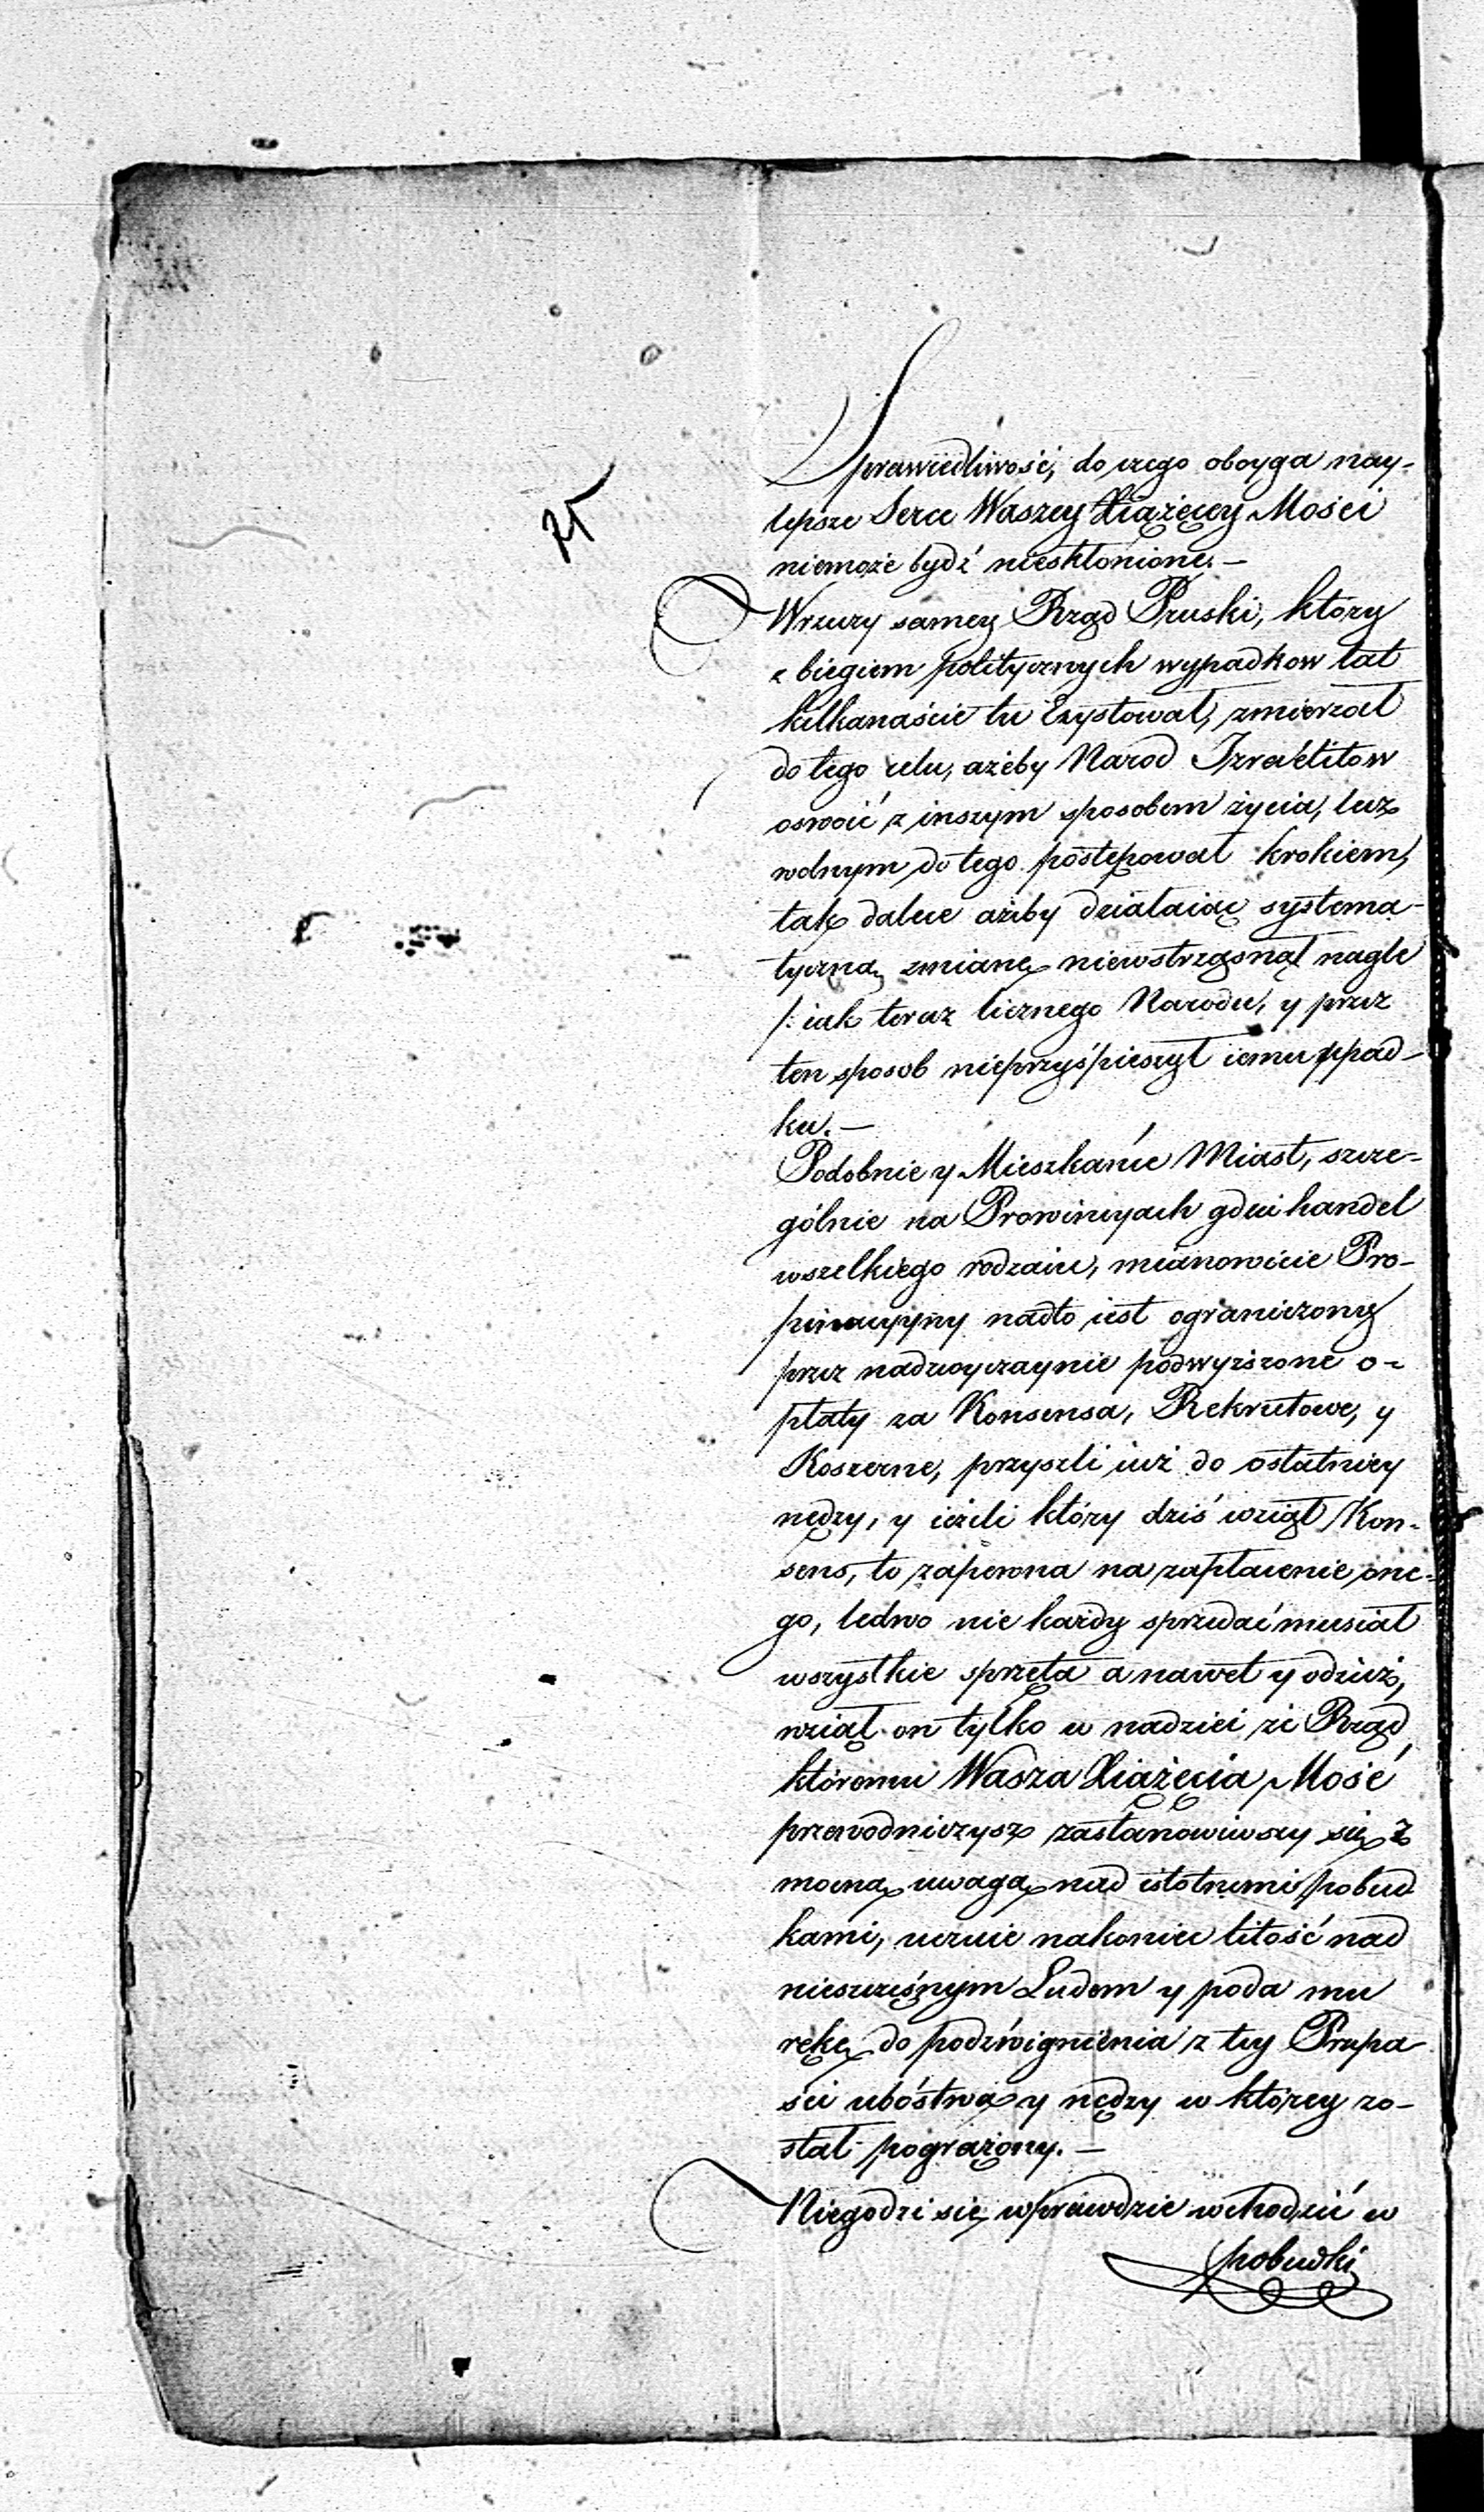 25
Sprawiedliwość, do czego oboyga nay-
lepsze Serce Waszey Xiążęcey Mości
niemoże bydź niesktonione. —
Wrzeczy samey Rząd Pruski, ktory
z biegiem politycznych wypadkow lat
kilkanaście tu Exystował, zmierzał
do tego celu, ażeby Narod Izraelitow
oswoić z inszym sposobem życia, lecz
wolnym do tego postępował krokiem,
tak dalece ażeby działaiąc systema-
tyczną zmianę niewstrząsnął nagle
/: iak teraz licznego Narodu, y przez
ten sposob nieprzyśpieszył iemu upad-
ku. —
Podobnie y Mieszkańce Miast, szcze-
gólnie na Prowincyach gdzie handel
wszelkiego rodzaiu, mianowicie Pro-
pinacyyny nadto iest ograniczony
przez nadzwyczaynie podwyższone o-
płaty za Konsensa, Rekrutowe, y
Koszerne, przyszli iuż do ostatniey
nędzy, y ieżeli który dziś wziął Kon-
sens, to zapewna na zapłacenie one-
go, ledwo nie każdy sprzedać musiał
wszystkie sprzęta a nawet y odzież,
wziął on tylko w nadziei że Rząd
któremu Wasza Xiążęcia Mość
przewodniczysz zastanowiwszy się z
mocną uwagą nad istotnemi pobud
kami, uczuie nakoniec litość nad
nieszczęsnym Ludem y poda mu
rękę do podzwignienia z tey Przepa
ści ubóstwa y nędzy w którey zo-
stał pogrążony. —
Niegodzi się wprawdzie wchodzić w
pobudki